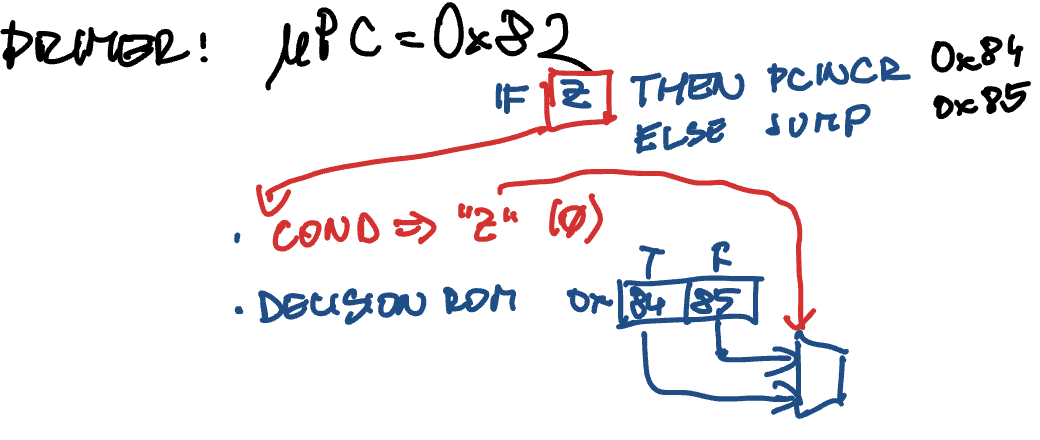 PRIMER! μPC = 0x82
IF Z THEN PCINCR 0x84
ELSE JUMP 0x85
• COND ⇒ "Z" (0)
T F
• DECISION ROM 0x 84 85